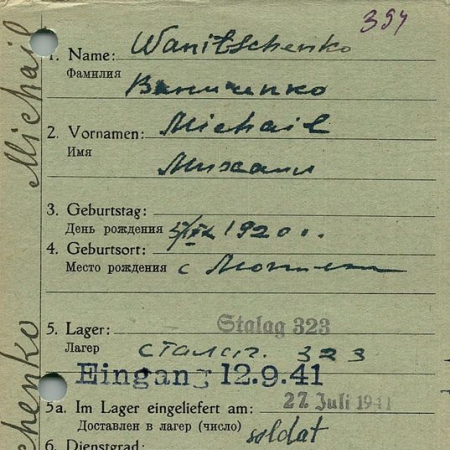 394
1. Name: Wanitschenko
Фамилия
Ваниченко
2. Vornamen: Michail
Имя
Михаил
3. Geburtstag:
День рождения 1920 г.
4. Geburtsort:
Место рождения с
5. Lager: Stalag 323
Лагер сталаг. 323
Eingang 12.9.41
5a. Im Lager eingeliefert am: 27 Juli 1941
Доставлен в лагер (число)
6. Dienstgrad: soldat
Michail
chenko